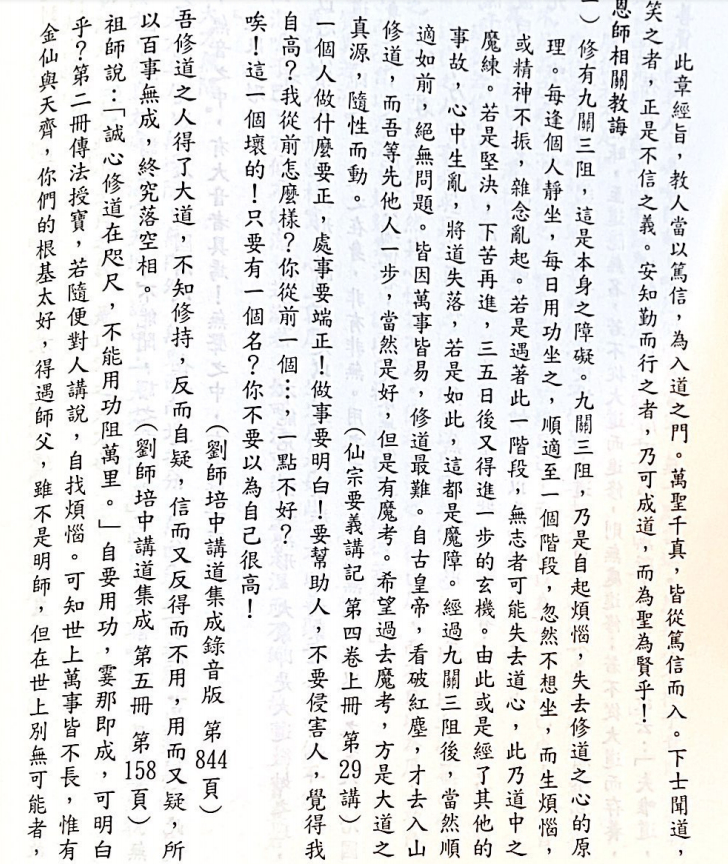 此章經旨，教人當以篤信，為入道之門。萬聖千真，皆從篤信而入。下士聞道，
笑之者，正是不信之義。安知勤而行之者，乃可成道，而為聖為賢乎！
恩師相關教誨
一）修有九關三阻，這是本身之障礙。九關三阻，乃是自起煩惱，失去修道之心的原
理。每逢個人靜坐，每日用功坐之，順適至一個階段，忽然不想坐，而生煩惱，
或精神不振，雜念亂起。若是遇著此一階段，無志者可能失去道心，此乃道中之
魔練。若是堅決，下苦再進，三五日後又得進一步的玄機。由此或是經了其他的
事故，心中生亂，將道失落，若是如此，這都是魔障。經過九關三阻後，當然順
適如前，絕無問題。皆因萬事皆易，修道最難。自古皇帝，看破紅塵，才去入山
修道，而吾等先他人一步，當然是好，但是有魔考。希望過去魔考，方是大道之
真源，隨性而動。（仙宗要義講記 第四卷上冊 第29講）
一個人做什麼要正，處事要端正！做事要明白！要幫助人，不要侵害人，覺得我
自高？我從前怎麼樣？你從前一個…，一點不好？
唉！這個壞的！只要有一個名？你不要以為自己很高！
（劉師培中講道集成錄音版 第844頁）
吾修道之人得了大道，不知修持，反而自疑，信而又反得而不用，用而又疑，所
以百事無成，終究落空相。（劉師培中講道集成 第五冊 第158頁）
祖師說：「誠心修道在咫尺，不能用功阻萬里。」自要用功，霎那即成，可明白
乎？第二冊傳法授寶，若隨便對人講說，自找煩惱。可知世上萬事皆不長，惟有
金仙與天齊，你們的根基太好，得遇師父，雖不是明師，但在世上別無可能者，